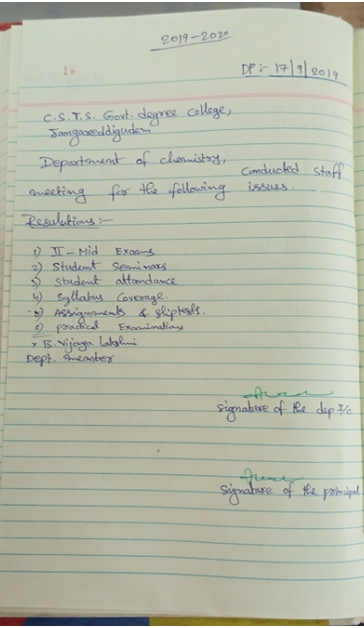 2019-2020
16
DT:- 17/9/2019
C.S.T.S. Govt. degree college,
Jangareddigudem
Department of chemistry, Conducted staff
meeting for the following issues.
Resolutions:-
1) II - Mid Exams
2) Student Seminars
3) Student attendance
4) Syllabus Coverage
5) Assignments & sliptests.
6) practical Examinations
B. Vijaya Lakshmi
Dept. member
signature of the dep I/c
signature of the principal